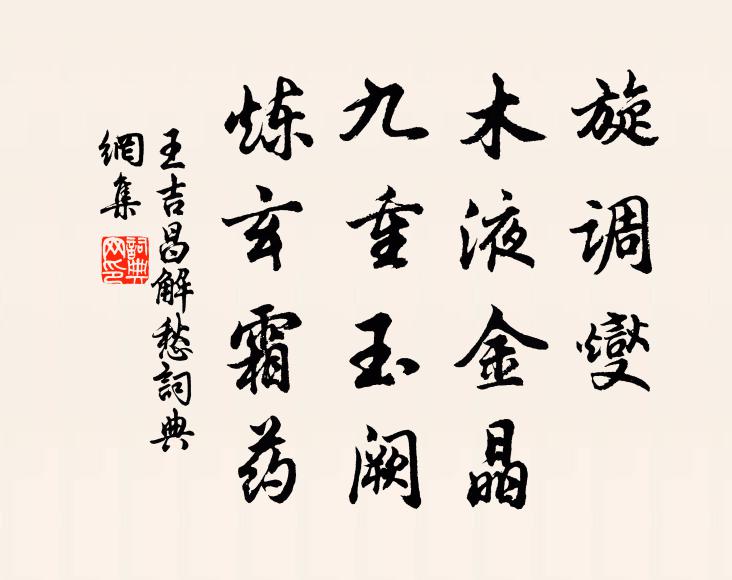 旋调燮
木液金晶
九重玉阙
炼玄霜药
王吉昌解愁詞典
網集
詞典
网印